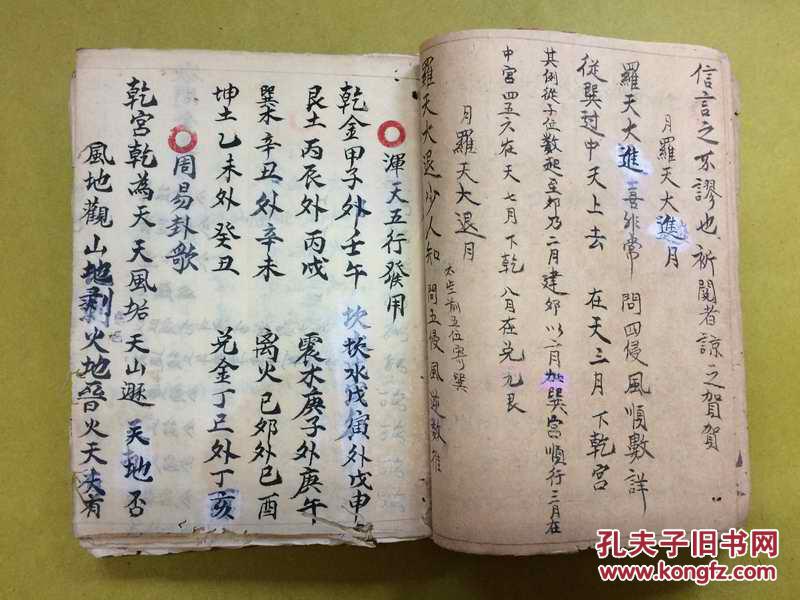 信言之不謬也祈閱者諒之賀賀
月羅天大進月
羅天大進喜非常 問四侵風順數詳
從巽过中天上去 在天三月下乾宮
其例從子位數起至卯乃二月建卯以二月加巽宮順行三月在
中宮四五六在天七月下乾八月在兑九艮
月羅天大退月
羅天大退少人知 問五侵風逆數推
渾天五行發用
乾金甲子外壬午 坎水戊寅外戊申
艮土丙辰外丙戌 震木庚子外庚午
巽木辛丑外辛未 离火已卯外已酉
坤土乙未外癸丑 兑金丁巳外丁亥
周易卦歌
乾宮乾為天 天風姤 天山遯 天地否
風地觀 山地剥 火地晉 火天大有
孔夫子旧书网
www.kongfz.com